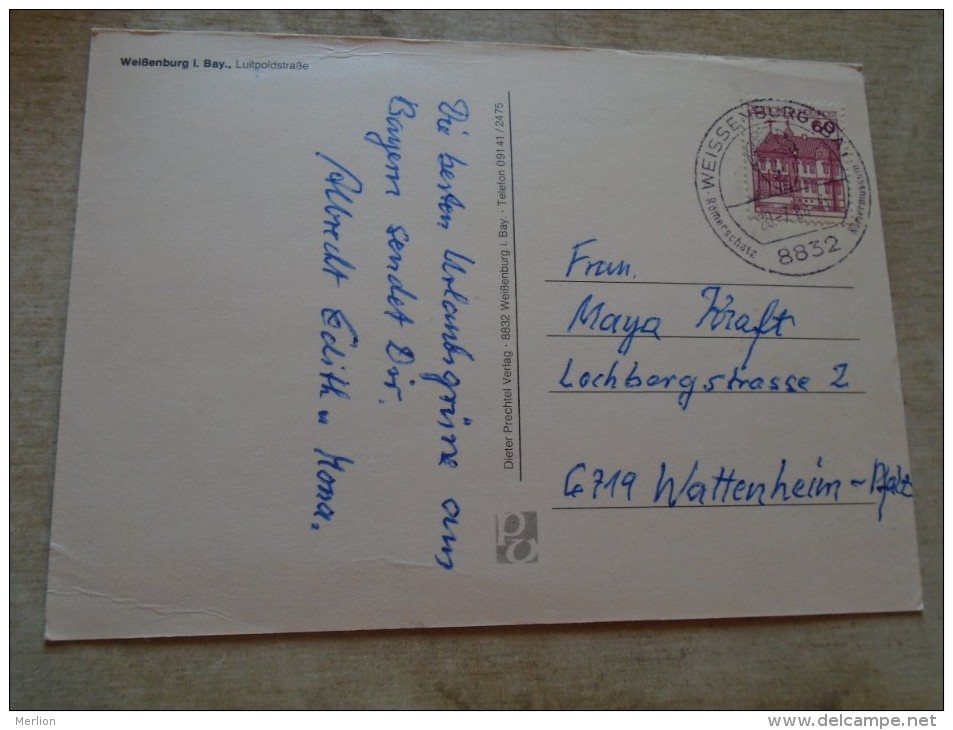 Weißenburg i. Bay., Luitpoldstraße
Die besten Urlaubsgrüsse aus
Bayern sendet Dir.
Albrecht Edith u Mona.
Dieter Prechtel Verlag · 8832 Weißenburg i. Bay. · Telefon 09141/2475
60
WEISSENBURG BAY
Römerschatz Römermuseum
8832
Frau.
Maya Kraft
Lochbergstrasse 2
6719 Wattenheim-Pfalz
Merlion
www.delcampe.net